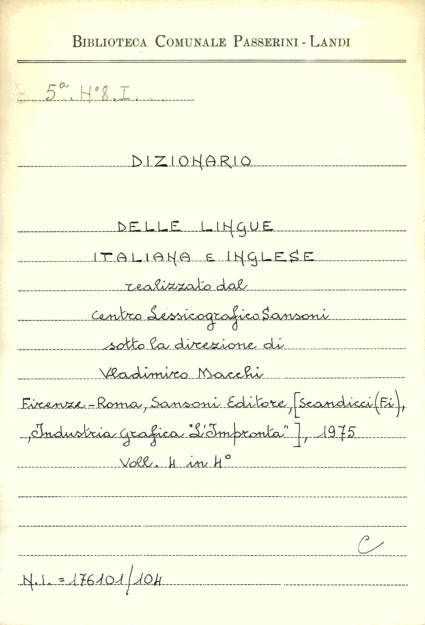 BIBLIOTECA COMUNALE PASSERINI - LANDI
5ª. H°8. I.
DIZIONARIO
DELLE LINGUE
ITALIANA E INGLESE
realizzato dal
Centro Lessicografico Sansoni
sotto la direzione di
Vladimiro Macchi
Firenze-Roma, Sansoni Editore, [Scandicci (Fi),
"Industria Grafica "L'Impronta"], 1975
Voll. 4 in 4°
C
N.I. = 176101/104